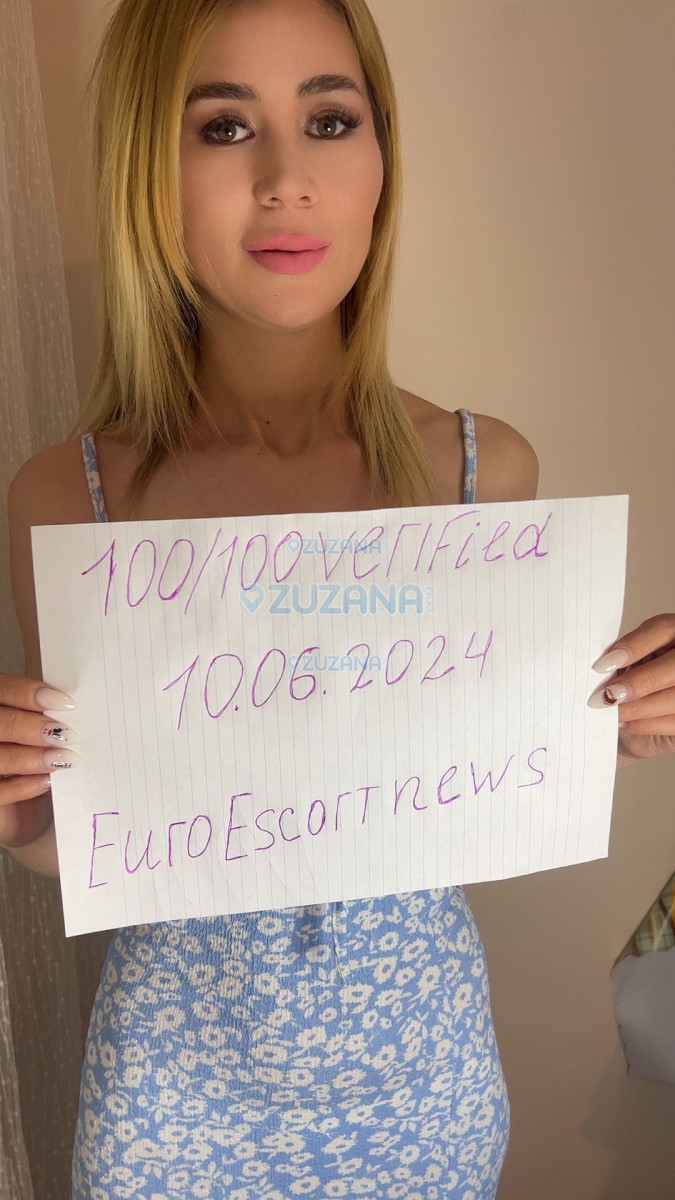 100/100 verified
ZUZANA
ZUZANA.com
10.06.2024
ZUZANA
EuroEscortnews